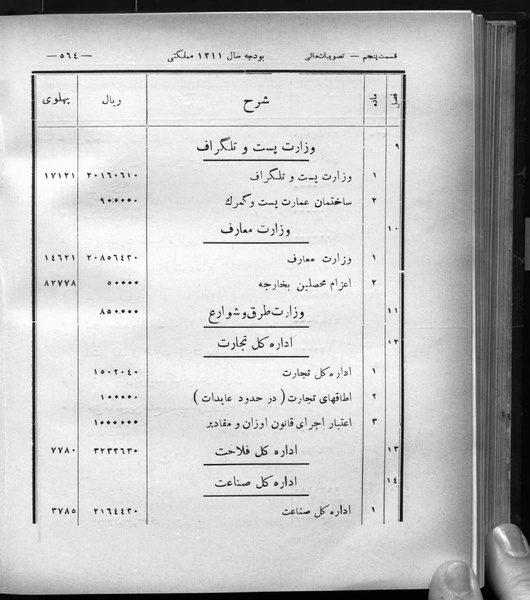 قسمت پنجم — تصویبات مالی بودجه سال ۱۳۱۱ مملکتی —۵٦٤—
فصل ماده شرح ریال پهلوی
۹ وزارت پست و تلگراف
۱ وزارت پست و تلگراف ۲۰۱٦۰٦۱۰ ۱۷۱۲۱
۲ ساختمان عمارت پست و گمرك ۹۰۰۰۰۰
۱۰ وزارت معارف
۱ وزارت معارف ۲۰۸۵٦٤۳۰ ۱٤٦۲۱
۲ اعزام محصلین بخارجه ۵۰۰۰۰ ۸۲۷۷۸
۱۱ وزارت طرق و شوارع ۸۵۰۰۰۰
۱۲ اداره کل تجارت
۱ اداره کل تجارت ۱۵۰۲۰٤۰
۲ اطاقهای تجارت ( در حدود عایدات ) ۱۰۰۰۰۰
۳ اعتبار اجرای قانون اوزان و مقادیر ۱۰۰۰۰۰۰
۱۳ اداره کل فلاحت ۳۲۳۲٦۳۰ ۷۷۸۰
۱٤ اداره کل صناعت
۱ اداره کل صناعت ۲۱٦٤٤۲۰ ۳۷۸۵